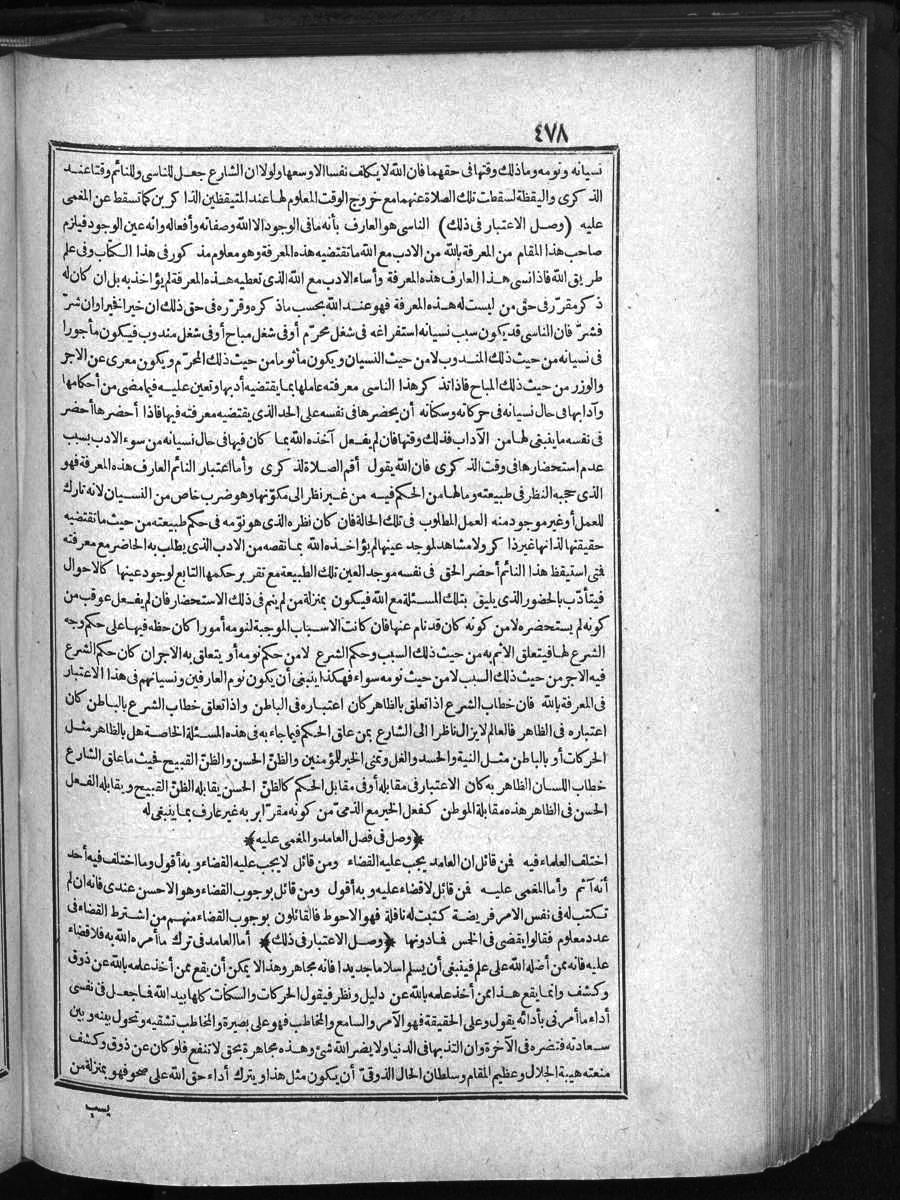 ٤٧٨
نسيانه ونومه وماذلك وقتها فى حقهما فان الله لا يكلف نفسا الا وسعها ولولا ان الشارع جعل للناسى وللنائم وقتا عند
الذكرى واليقظة لسقطت تلك الصلاة عنهما مع خروج الوقت المعلوم لها عند المتيقظين الذاكرين كما تسقط عن المغمى
عليه (وصل الاعتبار فى ذلك) الناسى هو العارف بأنه ما فى الوجود الا الله وصفاته وأفعاله وانه عين الوجود فيلزم
صاحب هذا المقام من المعرفة بالله من الادب مع الله ما تقتضيه هذه المعرفة وهو معلوم مذكور فى هذا الكتاب وفى علم
طريق الله فاذا نسى هذا العارف هذه المعرفة وأساء الادب مع الله الذى تعطيه هذه المعرفة لم يؤاخذ به بل ان كان له
ذكر مقرّر فى حق من ليست له هذه المعرفة فهو عند الله بحسب ماذكره وقرّره فى حق ذلك ان خيرا فخيرا وان شرّا
فشرّ فان الناسى قد يكون سبب نسيانه استفراغه فى شغل محرّم أو فى شغل مباح أو فى شغل مندوب فيكون مأجورا
فى نسيانه من حيث ذلك المندوب لا من حيث النسيان ويكون مأثوما من حيث ذلك المحرّم ويكون معرى عن الاجر
والوزر من حيث ذلك المباح فاذا تذكر هذا الناسى معرفته عاملها بما يقتضيه أدبها وتعين عليه فيما مضى من أحكامها
وآدابها فى حال نسيانه فى حركاته وسكناته أن يحضرها فى نفسه على الحد الذى يقتضيه معرفته فيها فاذا أحضرها أحضر
فى نفسه ما ينبغى لها من الآداب فذلك وقتها فان لم يفعل آخذه الله بما كان فيها فى حال نسيانه من سوء الادب بسبب
عدم استحضارها فى وقت الذكرى فان الله يقول أقم الصلاة لذكرى وأما اعتبار النائم العارف هذه المعرفة فهو
الذى حجبه النظر فى طبيعته وما لها من الحكم فيه من غير نظر الى مكوّنها وهو ضرب خاص من النسيان لانه تارك
للعمل أو غير موجود منه العمل المطلوب فى تلك الحالة فان كان نظره الذى هو نومه فى حكم طبيعته من حيث ما تقتضيه
حقيقتها لذاتها غير ذاكر ولا مشاهد لموجد عينها لم يؤاخذه الله بما نقصه من الادب الذى يطلب به الحاضر مع معرفته
فتى استيقظ هذا النائم أحضر الحق فى نفسه موجد العين تلك الطبيعة مع تقرير حكمها التابع لوجود عينها كالاحوال
فيتأدّب بالحضور الذى يليق بتلك المسئلة مع الله فيكون بمنزلة من لم ينم فى ذلك الاستحضار فان لم يفعل عوقب من
كونه لم يستحضره لا من كونه كان قد نام عنها فان كانت الاسباب الموجبة لنومه أمورا كان حظه فيها على حكم وجه
الشرع لها فيتعلق الاثم به من حيث ذلك السبب وحكم الشرع لا من حكم نومه أو يتعلق به الاجر ان كان حكم الشرع
فيه الاجر من حيث ذلك السبب لا من حيث نومه سواء فهكذا ينبغى أن يكون نوم العارفين ونسيانهم فى هذا الاعتبار
فى المعرفة بالله فان خطاب الشرع اذا تعلق بالظاهر كان اعتباره فى الباطن واذا تعلق خطاب الشرع بالباطن كان
اعتباره فى الظاهر فالعالم لا يزال ناظرا الى الشارع بمن علق الحكم فيما جاء به فى هذه المسئلة الخاصة هل بالظاهر مثل
الحركات أو بالباطن مثل النية والحسد والغل وتمنى الخير للمؤمنين والظنّ الحسن والظنّ القبيح فحيث ما علق الشارع
خطاب اللسان الظاهر به كان الاعتبار فى مقابله أو فى مقابل الحكم كالظنّ الحسن يقابله الظنّ القبيح ويقابله الفعل
الحسن فى الظاهر هذه مقابلة الموطن كفعل الخير مع الذمىّ من كونه مقرّا بر به غير عارف بما ينبغى له
﴿وصل فى فصل العامد والمغمى عليه﴾
اختلف العلماء فيه فمن قائل ان العامد يجب عليه القضاء ومن قائل لا يجب عليه القضاء وبه أقول وما اختلف فيه أحد
أنه آثم وأما المغمى عليه فمن قائل لا قضاء عليه وبه أقول ومن قائل بوجوب القضاء وهو الاحسن عندى فانه ان لم
تكتب له فى نفس الامر فريضة كتبت له نافلة فهو الاحوط فالقائلون بوجوب القضاء منهم من اشترط القضاء فى
عدد معلوم فقالوا يقضى فى الخمس فادونها ﴿وصل الاعتبار فى ذلك﴾ أما العامد فى ترك ما أمره الله به فلا قضاء
عليه فانه ممن أضله الله على علم فينبغى أن يسلم اسلاما جديدا فانه مجاهر وهذا لا يمكن أن يقع ممن أخذ علمه بالله عن ذوق
وكشف وانما يقع هذا ممن أخذ علمه بالله عن دليل ونظر فيقول الحركات والسكنات كلها بيد الله فاجعل فى نفسى
أداء ما أمرنى بأدائه يقول وعلى الحقيقة فهو الآمر والسامع والمخاطب فهو على بصيرة والمخاطب تشقيه وتحول بينه وبين
سعادته فتضره فى الآخرة وان التذبها فى الدنيا ولا يضر الله شئ وهذه مجاهرة بحق لا تنفع فلو كان عن ذوق وكشف
منعته هيبة الجلال وعظيم المقام وسلطان الحال الذوقىّ أن يكون مثل هذا ويترك أداء حق الله على صحو فهو بمنزلة من
يسب